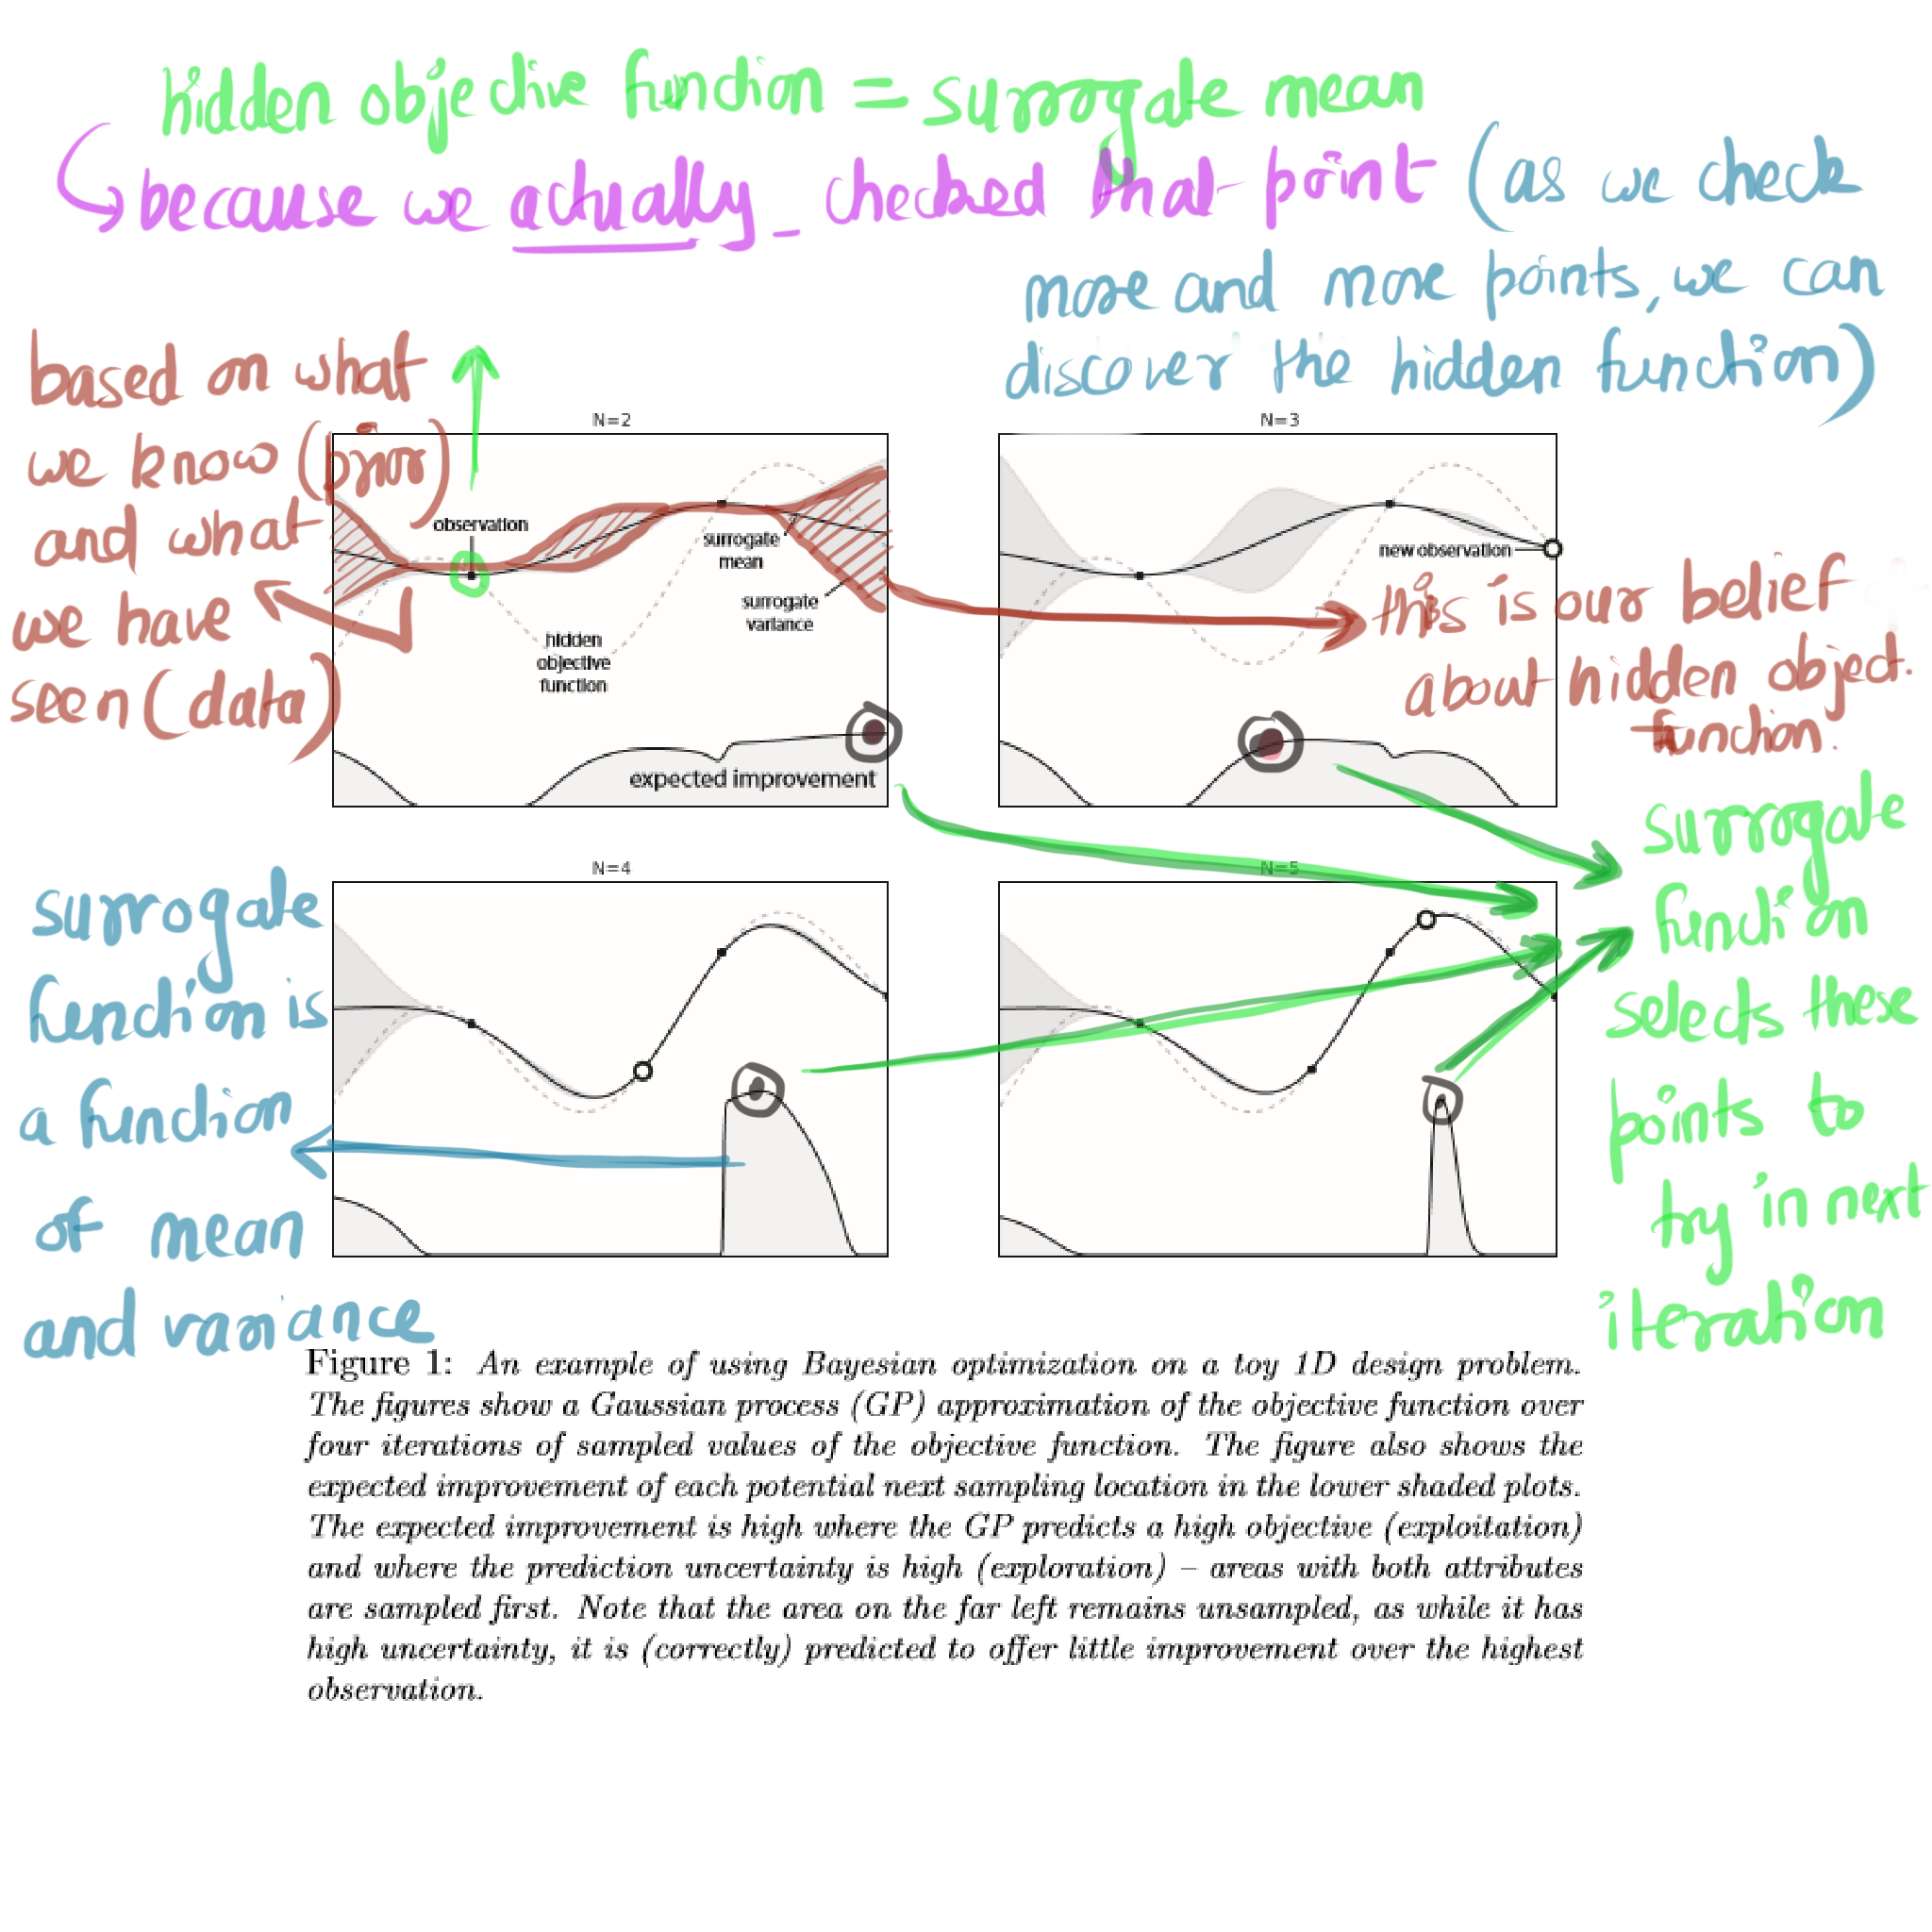 hidden objective function = surrogate mean
because we actually checked that point (as we check
more and more points, we can
discover the hidden function)
based on what
we know (prior)
and what
we have
seen (data)
N=2
observation
surrogate
mean
surrogate
variance
hidden
objective
function
expected improvement
N=3
new observation
this is our belief
about hidden object.
function.
surrogate
function
selects these
points to
try in next
iteration
surrogate
function is
a function
of mean
and variance
N=4
N=5
Figure 1: An example of using Bayesian optimization on a toy 1D design problem.
The figures show a Gaussian process (GP) approximation of the objective function over
four iterations of sampled values of the objective function. The figure also shows the
expected improvement of each potential next sampling location in the lower shaded plots.
The expected improvement is high where the GP predicts a high objective (exploitation)
and where the prediction uncertainty is high (exploration) – areas with both attributes
are sampled first. Note that the area on the far left remains unsampled, as while it has
high uncertainty, it is (correctly) predicted to offer little improvement over the highest
observation.